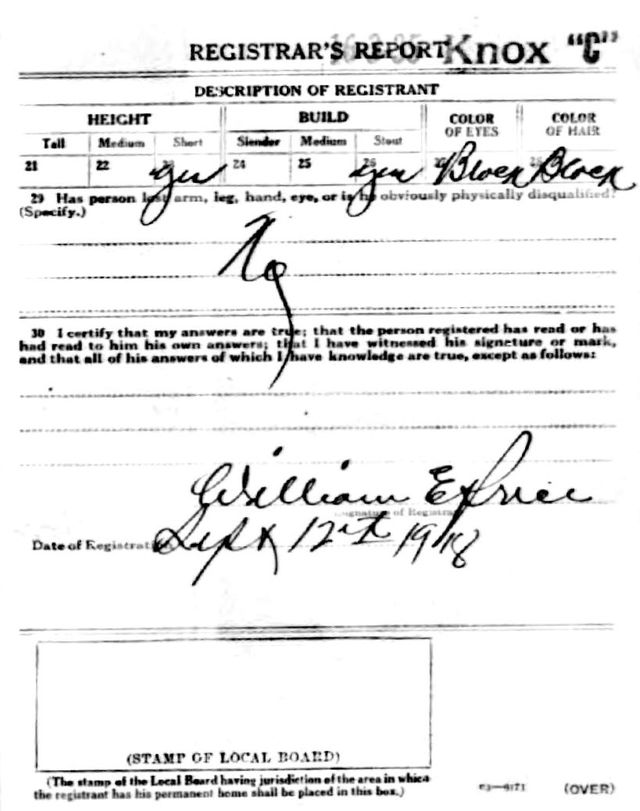 REGISTRAR'S REPORT Knox "C"
DESCRIPTION OF REGISTRANT
HEIGHT BUILD COLOR OF EYES COLOR OF HAIR
Tall Medium Short Slender Medium Stout
21 22 Yes 24 25 26 Yes Black Black
29 Has person lost arm, leg, hand, eye, or is he obviously physically disqualified?
(Specify.)
No
30 I certify that my answers are true; that the person registered has read or has
had read to him his own answers; that I have witnessed his signature or mark,
and that all of his answers of which I have knowledge are true, except as follows:
William E Price
Signature of Registrar
Date of Registration Sept 12th 1918
(STAMP OF LOCAL BOARD)
(The stamp of the Local Board having jurisdiction of the area in which
the registrant has his permanent home shall be placed in this box.)
(OVER)